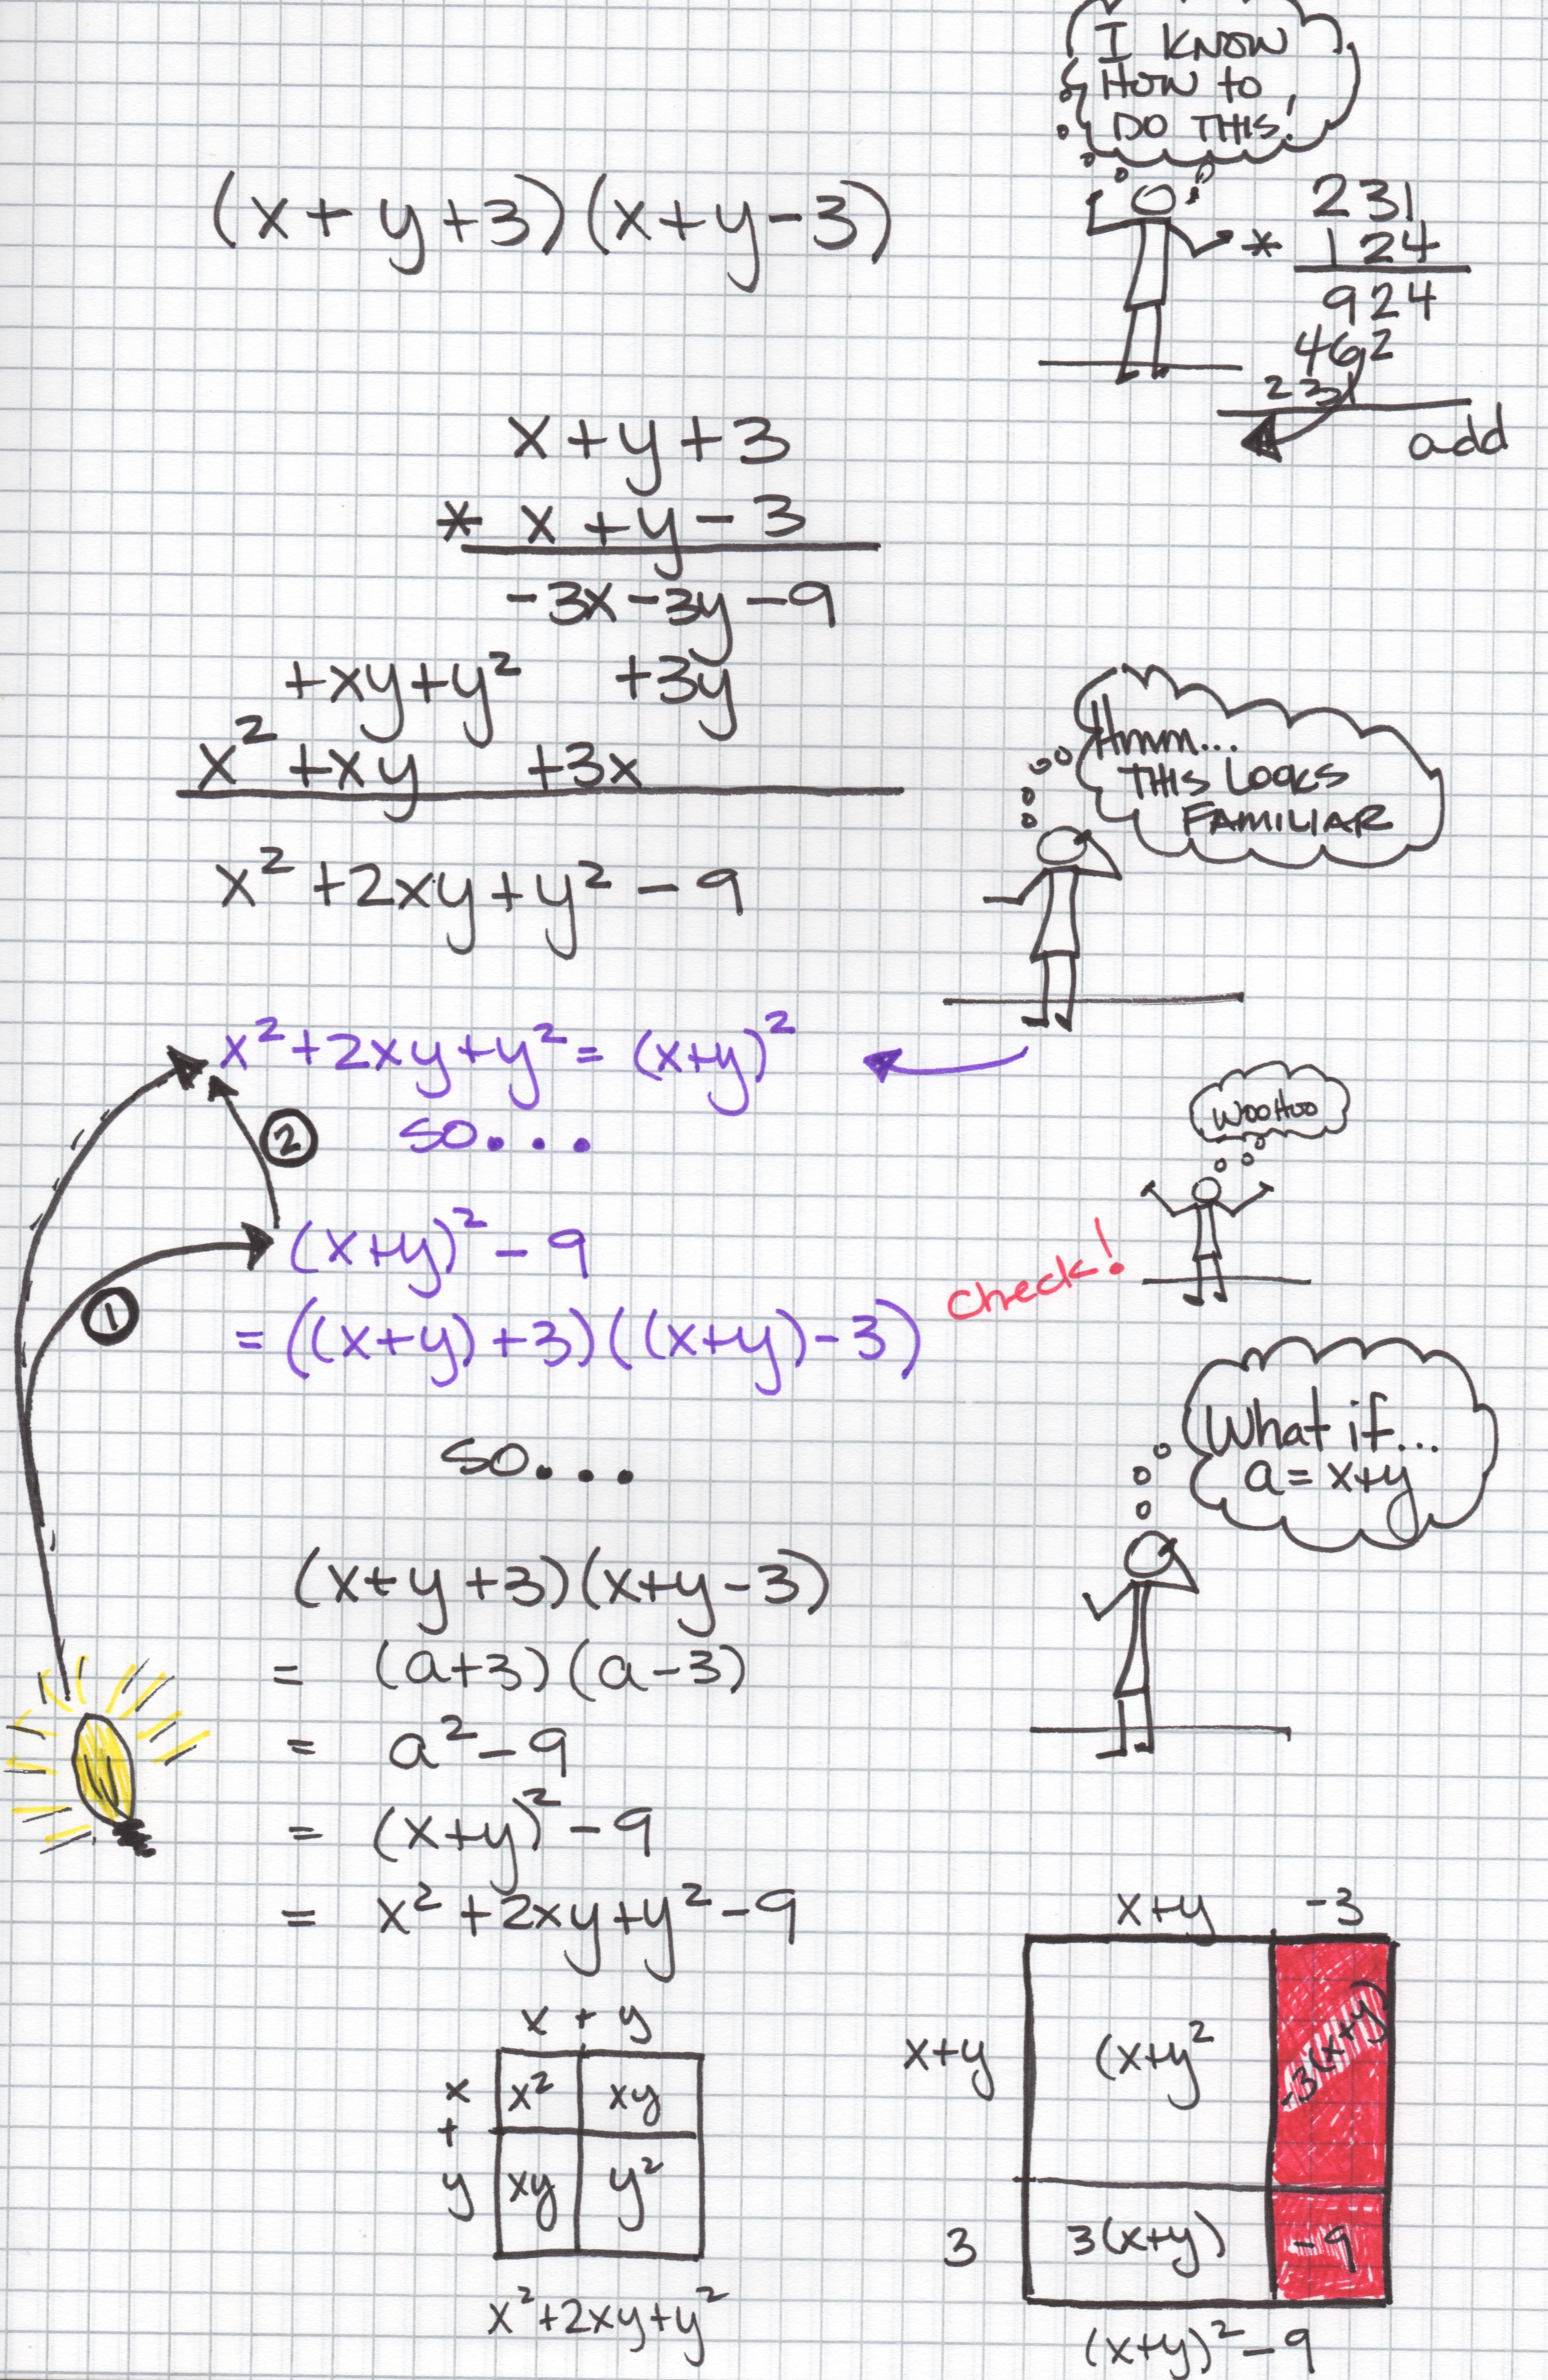 I KNOW
HOW to
DO THIS!
(x+y+3)(x+y-3)
231
* 124
924
462
231
add
x+y+3
* x+y-3
-3x-3y-9
+xy+y² +3y
x²+xy +3x
x²+2xy+y²-9
Hmm...
THIS LOOKS
FAMILIAR
x²+2xy+y²=(x+y)²
②
so...
WOOHOO
(x+y)²-9
①
check!
=((x+y)+3)((x+y)-3)
What if...
a=x+y
so...
(x+y+3)(x+y-3)
= (a+3)(a-3)
= a²-9
= (x+y)²-9
= x²+2xy+y²-9
x + y
x
+
y
x² xy
xy y²
x²+2xy+y²
x+y -3
x+y (x+y² -3(x+y)
3 3(x+y) -9
(x+y)²-9